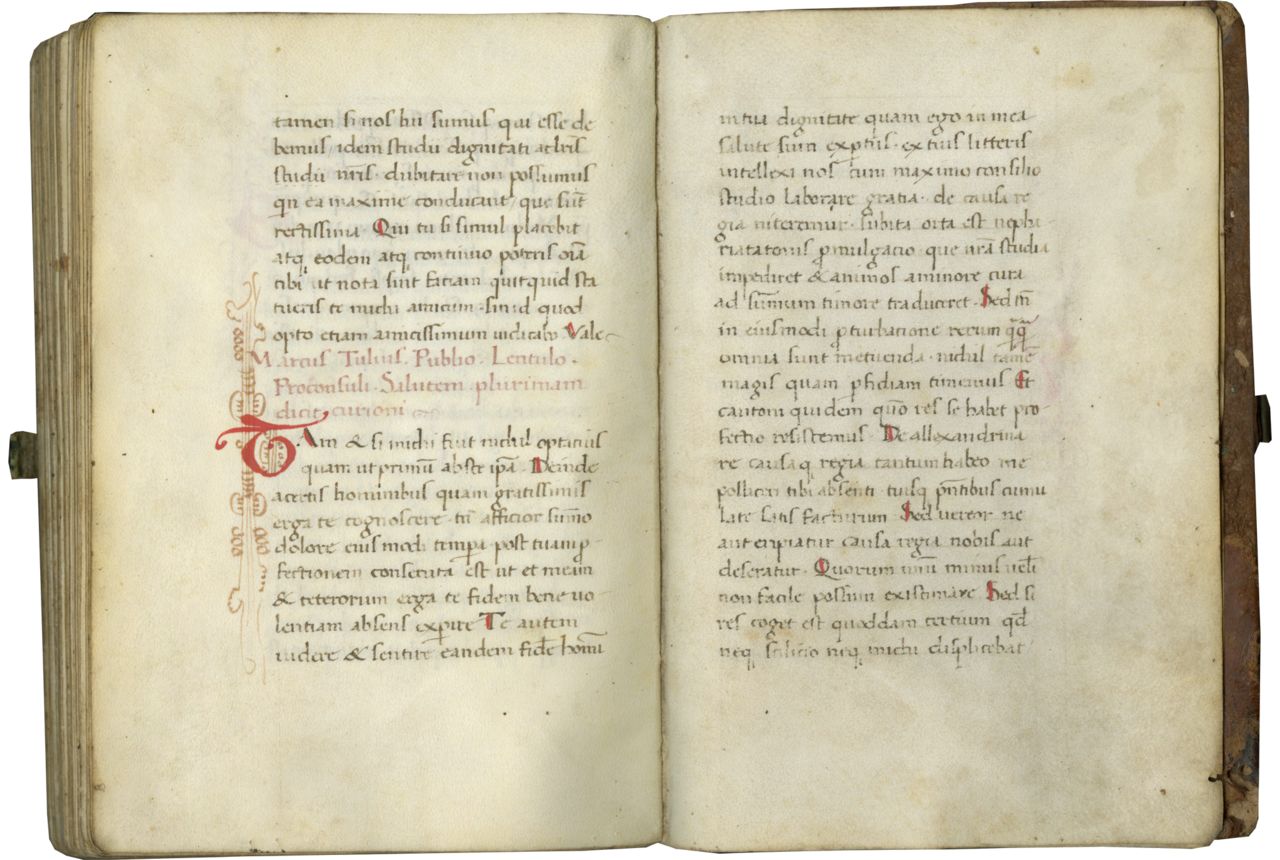 tamen si nos hii sumus qui esse de
bemus · idem studii dignitati ac
studii nr̄is · dubitare non possumus
qin ea maxime conducant que sūt
rectissima · Qui tu si simul placebit
atq eodem atq continuo poteris om̄ia
tibi ut nota sint faciam quitquid sta
tueris te michi amicum · simul quod
opto etiam amicissimum Vale
Marcus Tulius · Publio · Lentulo ·
Proconsuli · Salutem plurimam
dicit curioni
TAm & si michi fuit nichil optatius
quam ut primū abs te ipsa Deinde
a ceteris hominibus quam gratissimis
erga te cognoscere · tn̄ afficior sum̄o
dolore eius modi tempa post tuam p
fectionem consecuta est ut et meam
& ceterorum erga te fidem bene uo
lentiam absens expirere Te autem
uidere & sentire eandem fidē homū
in tua dignitate quam ego in mea
salute sum exptus · ex tuis litteris
intellexi nos cum maximo consilio
studio laborare gratia · de causa re
gia niteremur · subita orta est nepha
ria catonis pmulgacio · que nrā studia
impediret & animos a minore cura
ad sum̄um timore traduceret · Sed tn̄
in eiusmodi pturbatione rerum qq̄
omnia sunt metuenda · nichil tamē
magis quam pfidiam timemus Et
catoni quidem quō res se habet pro
fecto resistemus · De allexandrina
re causaq regia tantum habeo me
polliceri tibi absenti · tuisq pn̄tibus cumu
late satis facturum Sed uereor ne
aut eripiatur causa regia nobis aut
deseratur · Quorum utrū minus uelī
non facile possum existimare Sed si
res coget est quoddam tertium qd
neq selicio neq michi displicebat